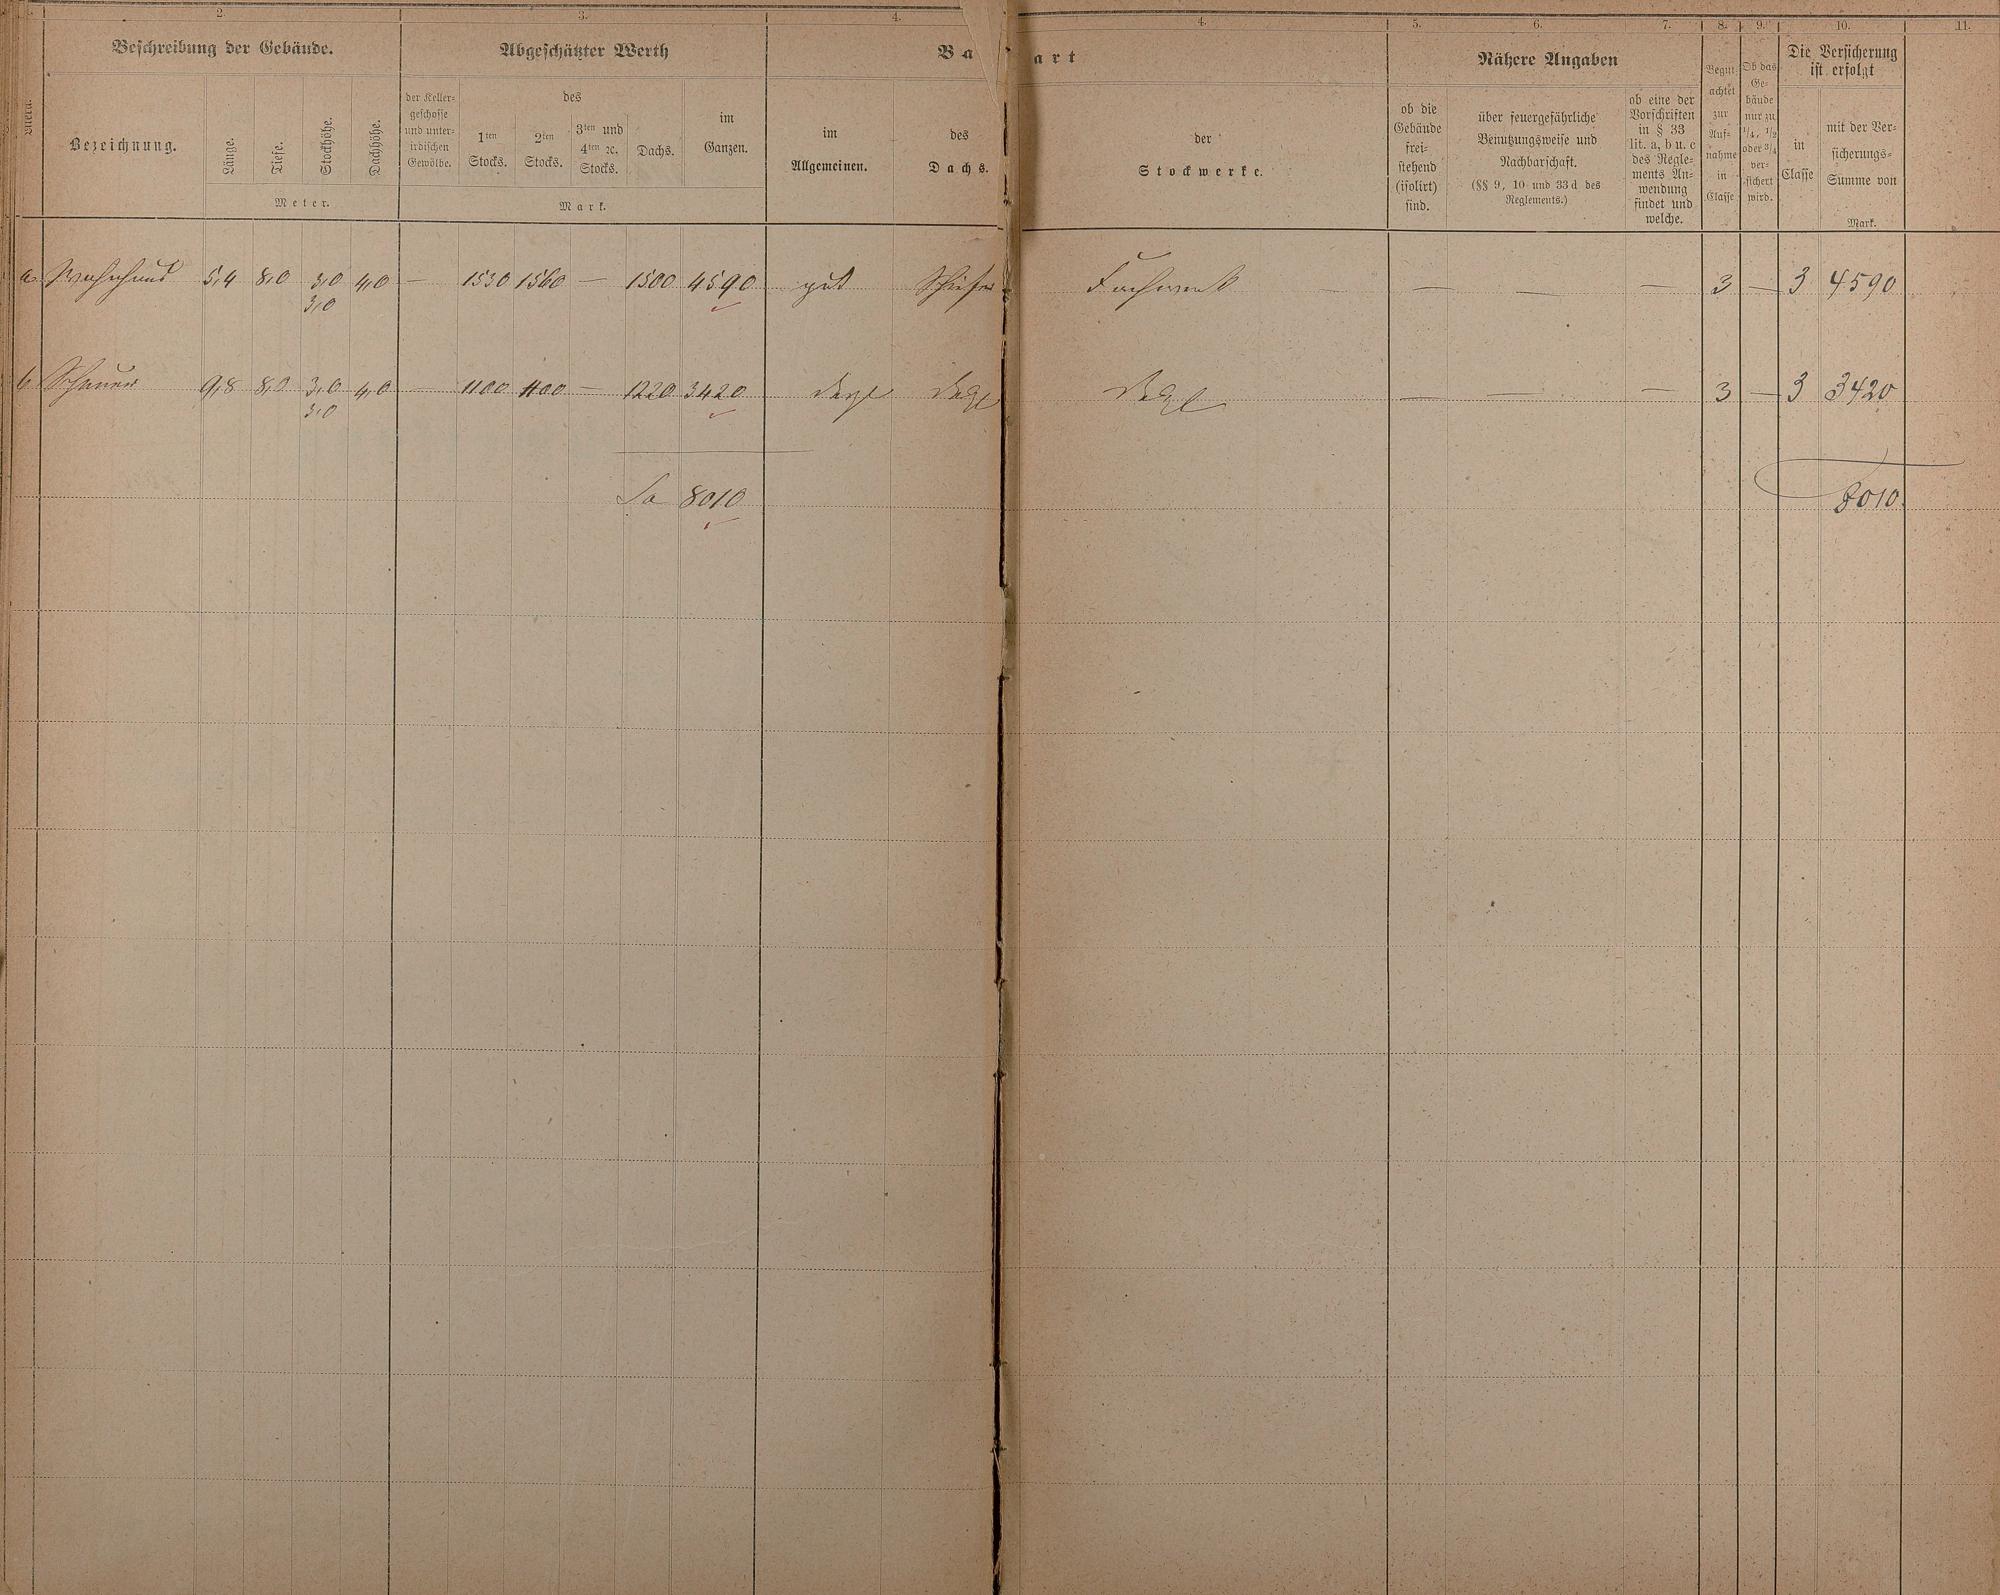 2. 3. 4. 4. 5. 6. 7. 8. 9. 10. 11.
Beschreibung der Gebäude. Abgeschätzter Werth Ba art Nähere Angaben Die Versicherung ist erfolgt
Bezeichnung. Länge. Tiefe. Stockhöhe. Dachhöhe.
Meter.
der Keller-
geschosse
und unter-
irdischen
Gewölbe.
des
1ten Stocks. 2ten Stocks. 3ten und 4ten ec. Stocks. Dachs.
im Ganzen.
Mark.
im Allgemeinen.
des Dachs.
der Stockwerke.
ob die
Gebäude
frei-
stehend
(isolirt)
sind.
über feuergefährliche
Benutzungsweise und
Nachbarschaft.
(§§ 9, 10 und 33 d des
Reglements.)
ob eine der
Vorschriften
in § 33
lit. a, b u. c
des Regle-
ments An-
wendung
findet und
welche.
Begut
achtet
zur
Auf-
nahme
in
Classe
Ob das
Ge-
bäude
nur zu
1/4, 1/2
oder 3/4
ver-
sichert
wird.
in
Classe
mit der Ver-
sicherungs-
Summe von
Mark.
a Wohnhaus 5,4 8,0 3,0 4,0 — 1530 1560 — 1500 4590 gut Schiefer Fachwerk — — — — 3 — 3 4590
3,0
b Scheuer 9,8 8,0 3,0 4,0 — 1100 1100 — 1220 3420 desgl desgl desgl — — — 3 — 3 3420
3,0
Sa 8010 8010.